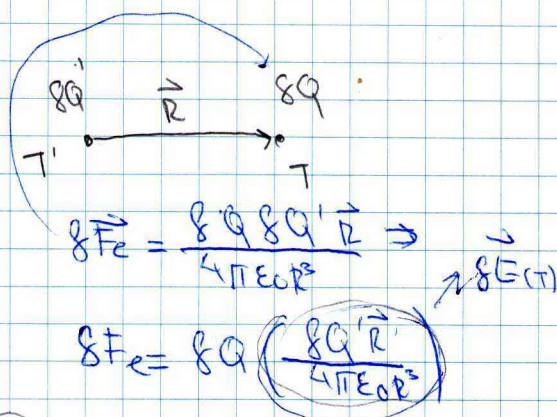 δQ' R⃗ δQ
T' T
δF⃗e = δQ δQ' R⃗ / 4πε₀R³ ⇒
δE⃗(T)
δFe = δQ (δQ' R⃗ / 4πε₀R³)